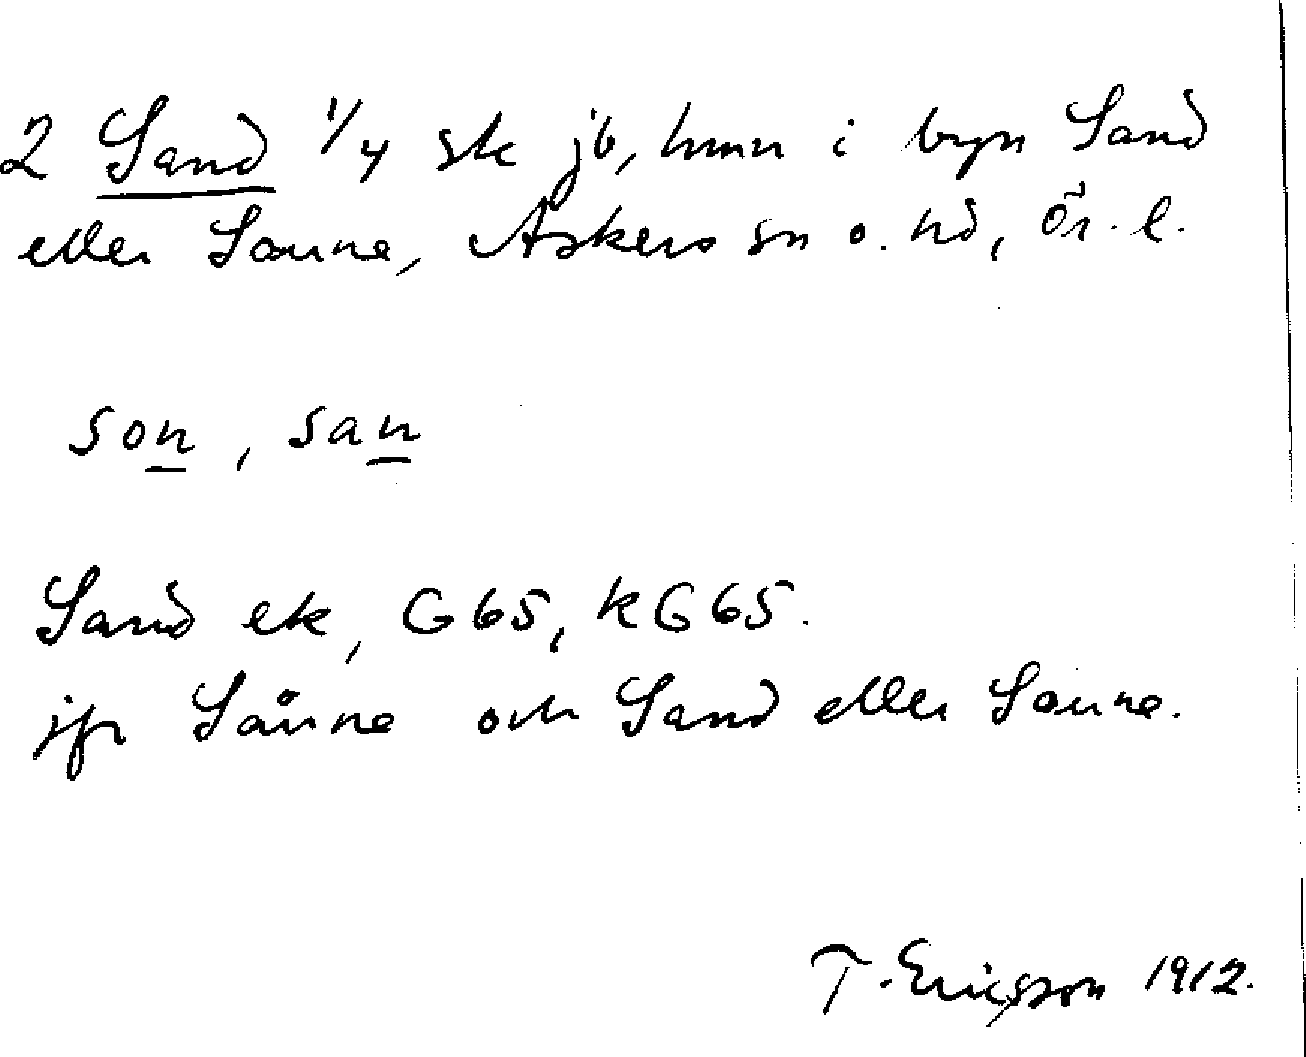 2 Sand 1/4 sk jb, hmn i byn Sand
eller Saune, Askers sn o. hd, Ör. l.
son, san
Sand ek, G65, kG65.
jfr Såune och Sand eller Saune.
T. Ericsson 1912.